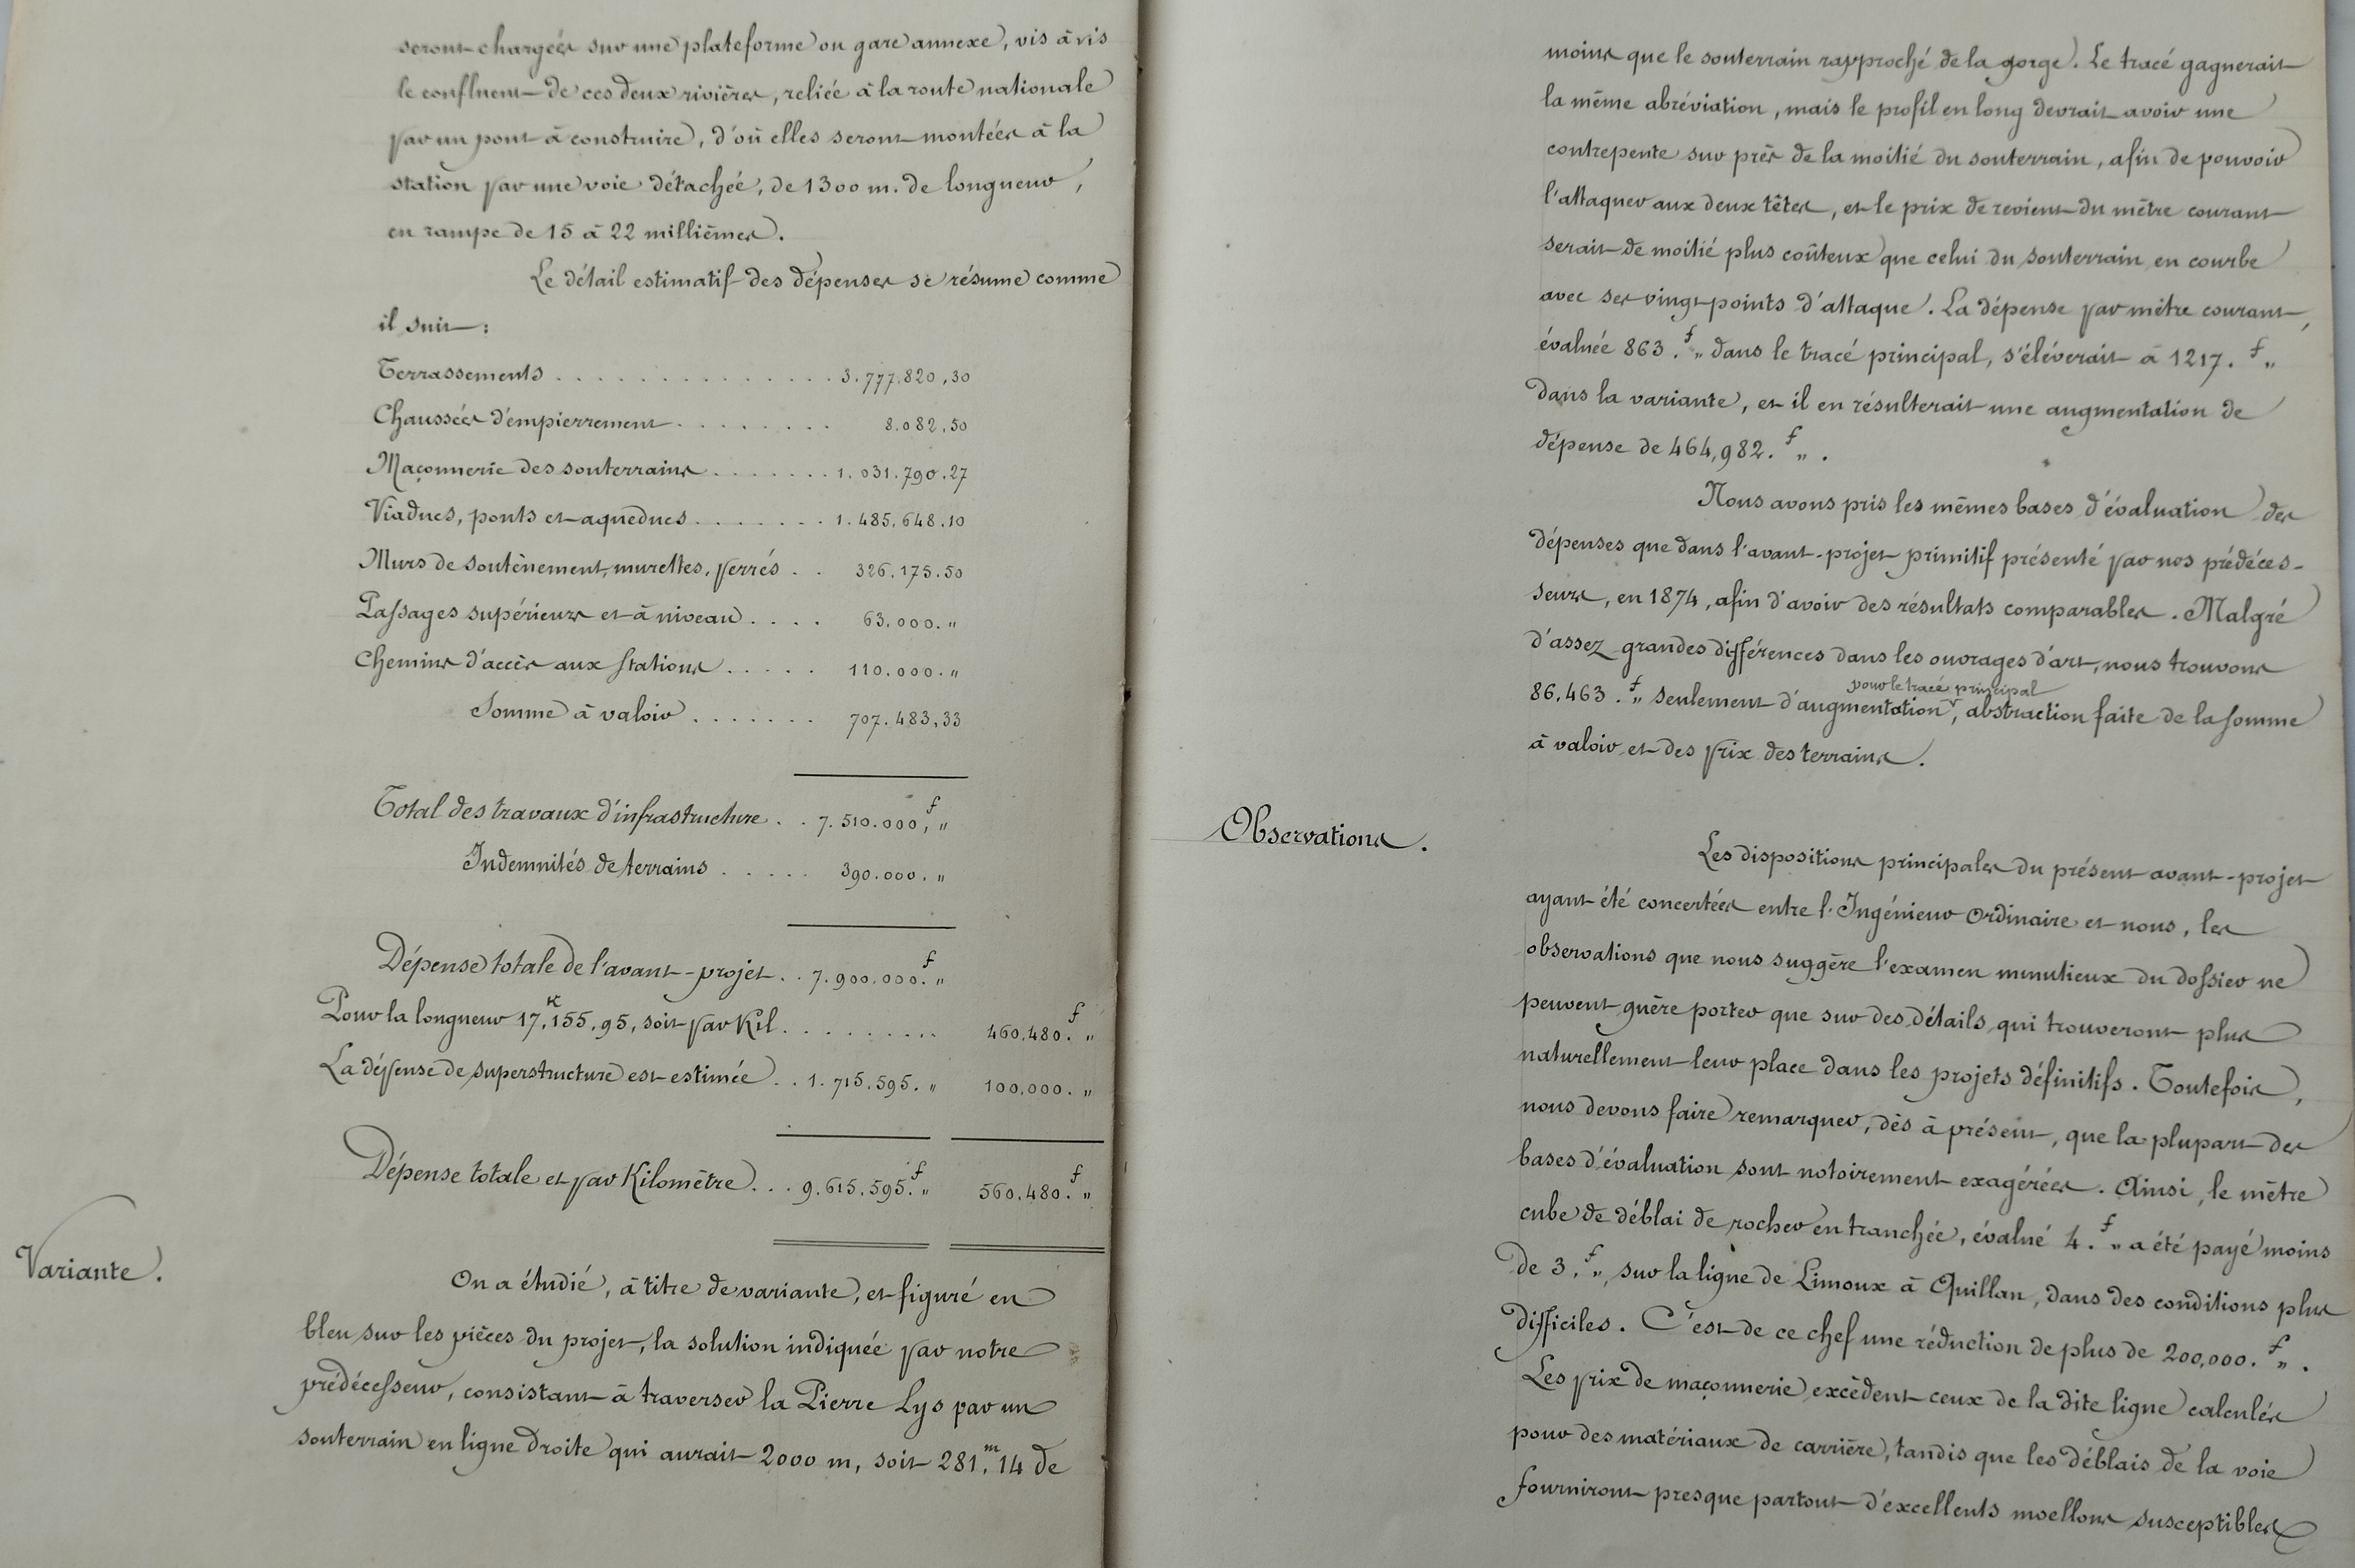 seront chargées sur une plateforme ou gare annexe, vis à vis
le confluent de ces deux rivières, reliée à la route nationale
par un pont à construire, d'où elles seront montées à la
station par une voie détachée, de 1300 m. de longueur,
en rampe de 15 à 22 millièmes.
Le détail estimatif des dépenses se résume comme
il suit :
Terrassements . . . . . . . . . . . . . . 3.777.820,30
Chaussées d'empierrement . . . . . . . . . 8.082,50
Maçonnerie des souterrains . . . . . . . 1.031.790.27
Viaducs, ponts et aqueducs . . . . . . . 1.485.648.10
Murs de soutènement, murettes, perrés . . 326.175.50
Passages supérieurs et à niveau . . . . 63.000. "
Chemins d'accès aux stations . . . . . 110.000. "
Somme à valoir . . . . . . . 707.483,33
Total des travaux d'infrastructure . . 7.510.000,f "
Indemnités de terrains . . . . . 390.000. "
Dépense totale de l'avant-projet . . 7.900.000.f "
Pour la longueur 17,K155,95, soit par Kil . . . . . . . . . 460,480.f "
La dépense de superstructure est estimée . . 1.715.595. " 100,000. "
Dépense totale et par Kilomètre . . . 9.615.595.f " 560.480.f "
Variante.
On a étudié, à titre de variante, et figuré en
bleu sur les pièces du projet, la solution indiquée par notre
prédécesseur, consistant à traverser la Pierre Lys par un
souterrain en ligne droite qui aurait 2000 m, soit 281,m14 de
moins que le souterrain rapproché de la gorge. Le tracé gagnerait
la même abréviation, mais le profil en long devrait avoir une
contrepente sur près de la moitié du souterrain, afin de pouvoir
l'attaquer aux deux têtes, et le prix de revient du mètre courant
serait de moitié plus coûteux que celui du souterrain en courbe
avec ses vingt points d'attaque. La dépense par mètre courant,
évaluée 863.f " dans le tracé principal, s'élèverait à 1217.f "
dans la variante, et il en résulterait une augmentation de
dépense de 464,982.f " .
Nous avons pris les mêmes bases d'évaluation des
dépenses que dans l'avant-projet primitif présenté par nos prédéces-
seurs, en 1874, afin d'avoir des résultats comparables. Malgré
d'assez grandes différences dans les ouvrages d'art, nous trouvons
pour le tracé principal
86,463.f " seulement d'augmentation, abstraction faite de la somme
à valoir et des prix des terrains.
Observations.
Les dispositions principales du présent avant-projet
ayant été concertées entre l'Ingénieur Ordinaire et nous, les
observations que nous suggère l'examen minutieux du dossier ne
peuvent guère porter que sur des détails qui trouveront plus
naturellement leur place dans les projets définitifs. Toutefois,
nous devons faire remarquer, dès à présent, que la plupart des
bases d'évaluation sont notoirement exagérées. Ainsi, le mètre
cube de déblai de rocher en tranchée, évalué 4.f " a été payé moins
de 3.f ", sur la ligne de Limoux à Quillan, dans des conditions plus
difficiles. C'est de ce chef une réduction de plus de 200,000.f " .
Les prix de maçonnerie excèdent ceux de la dite ligne calculés
pour des matériaux de carrière, tandis que les déblais de la voie
fourniront presque partout d'excellents moellons susceptibles